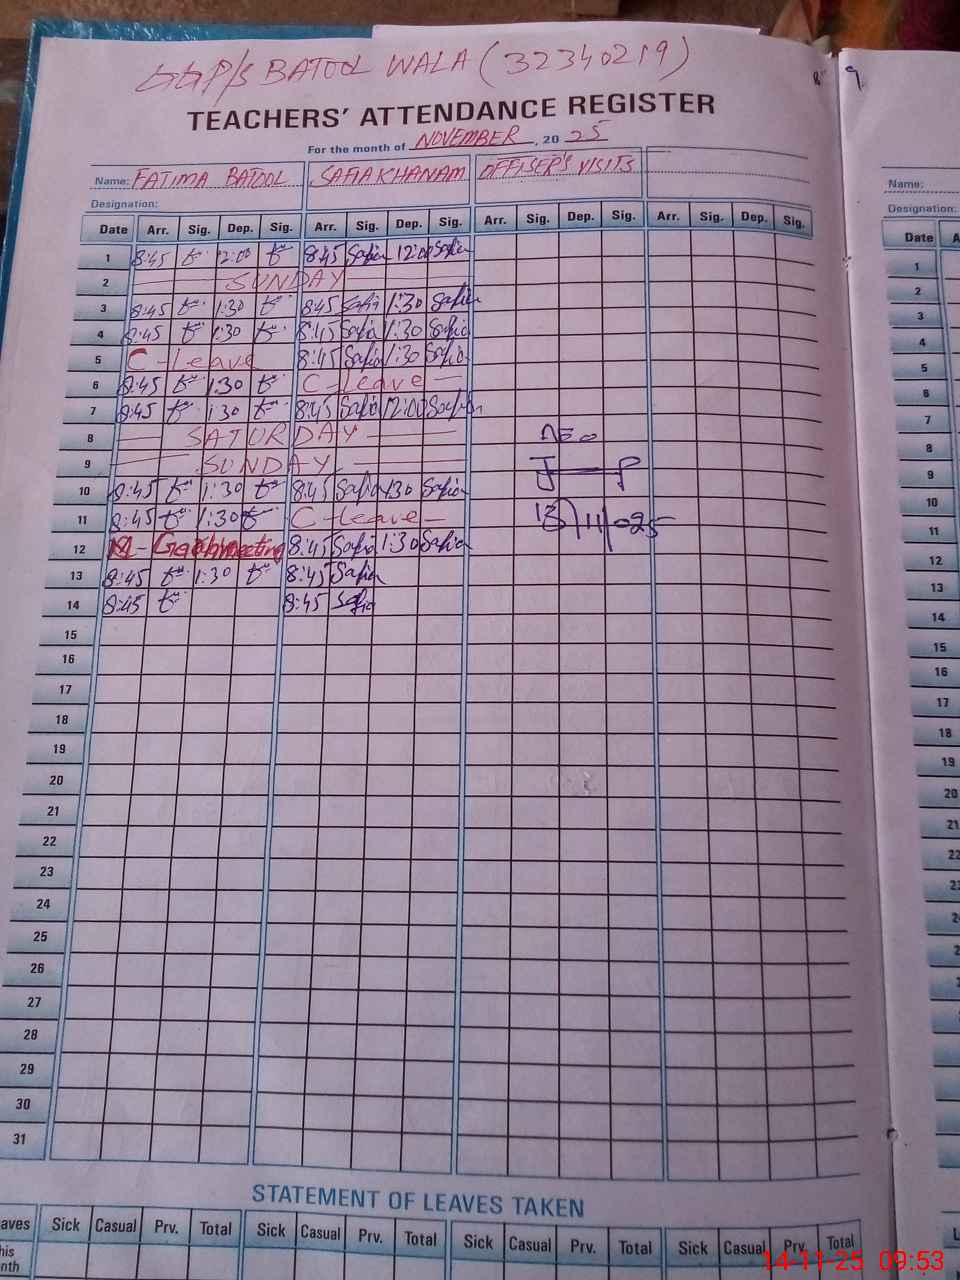 GGP/s BATOOL WALA (32340219)
TEACHERS' ATTENDANCE REGISTER
For the month of NOVEMBER, 20 25
Name: FATIMA BATOOL SAFIA KHANAM OFFISER'S VISITS
Designation:
Date Arr. Sig. Dep. Sig. Arr. Sig. Dep. Sig. Arr. Sig. Dep. Sig. Arr. Sig. Dep. Sig.
1 8:45 12:00 8:45 Safia 12:00 Safia
2 SUNDAY
3 8:45 1:30 8:45 Safia 1:30 Safia
4 8:45 1:30 8:45 Safia 1:30 Safia
5 C-Leave 8:45 Safia 1:30 Safia
6 8:45 1:30 C-Leave
7 8:45 1:30 8:45 Safia 12:00 Safia
8 SATURDAY
9 SUNDAY
10 8:45 1:30 8:45 Safia 1:30 Safia
11 8:45 1:30 C-Leave
12 meeting 8:45 Safia 1:30 Safia
13 8:45 1:30 8:45 Safia
14 8:45 8:45 Safia
15
16
17
18
19
20
21
22
23
24
25
26
27
28
29
30
31
AEO
13/11/025
STATEMENT OF LEAVES TAKEN
aves Sick Casual Prv. Total Sick Casual Prv. Total Sick Casual Prv. Total Sick Casual Prv. Total
his
nth
9
Name:
Designation:
Date A
1
2
3
4
5
6
7
8
9
10
11
12
13
14
15
16
17
18
19
20
21
22
14-11-25 09:53